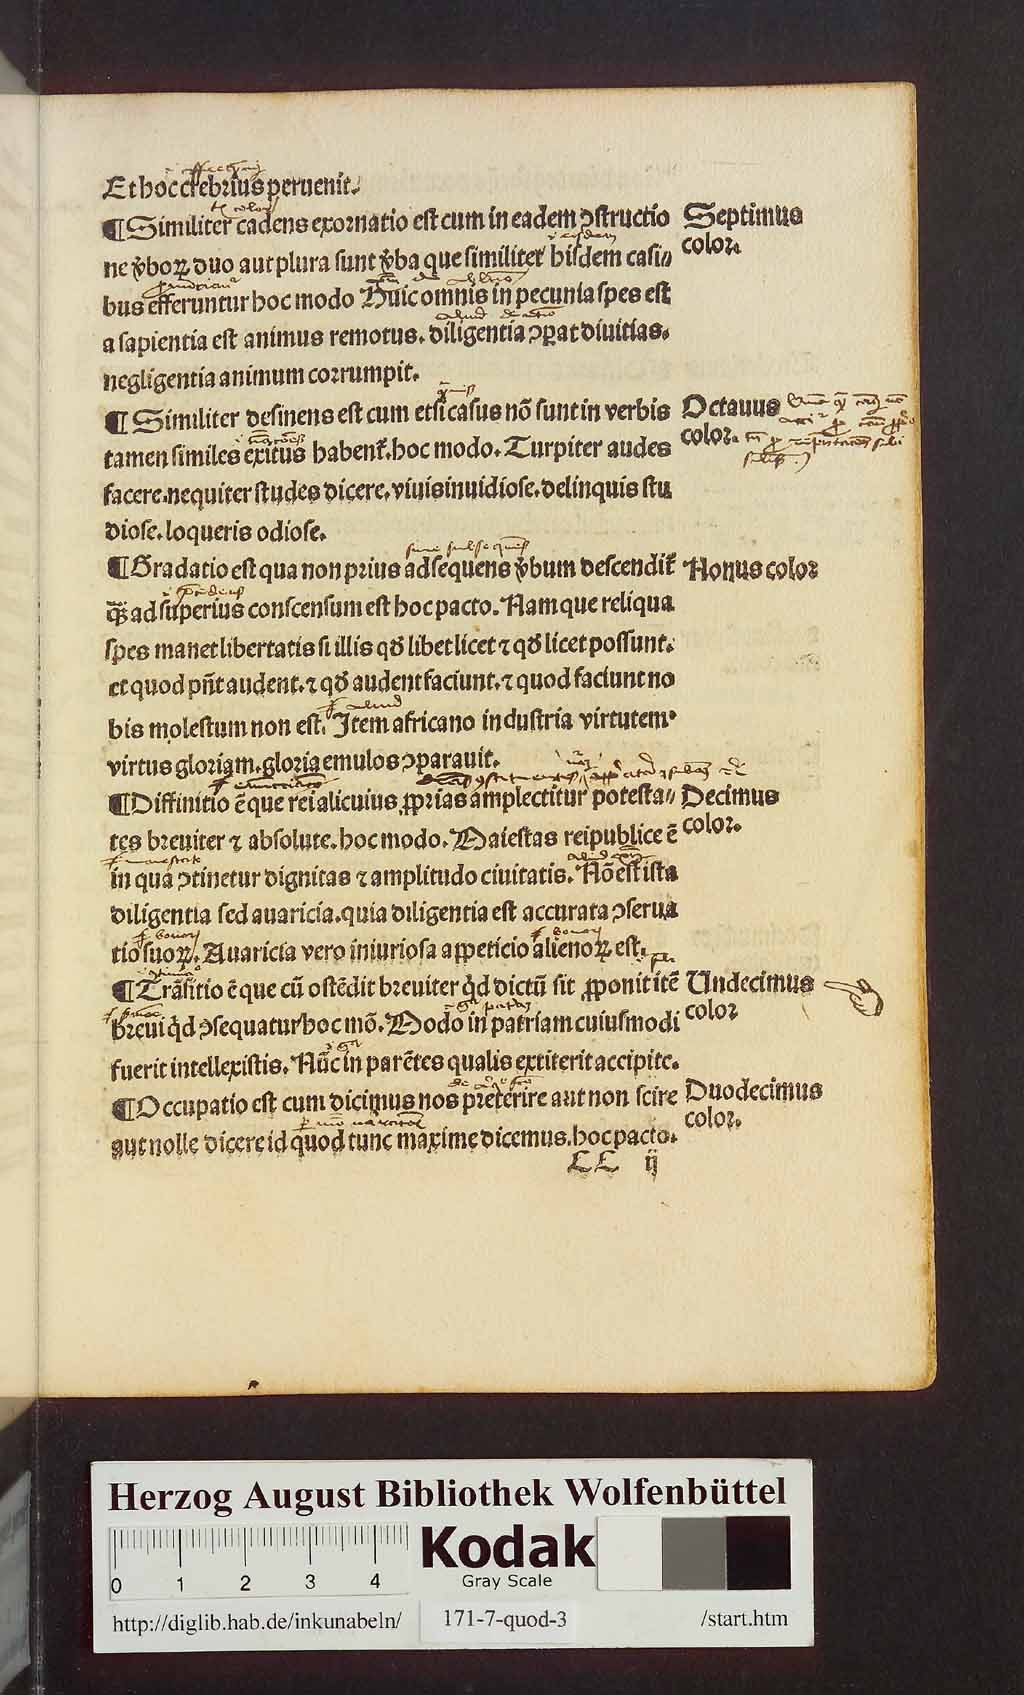 Et hoc crebrius peruenit.
¶ Similiter cadens exornatio est cum in eadem ɔstructio
Septimus
color.
ne v̾boꝝ duo aut plura sunt v̾ba que similiter hisdem casi⸗
bus efferuntur hoc modo Huic omnis in pecunia spes est
a sapientia est animus remotus. diligentia ɔꝑat diuitias.
negligentia animum corrumpit.
¶ Similiter desinens est cum etsi casus nō sunt in verbis
Octauus
color.
tamen similes exitus habent᷑. hoc modo. Turpiter audes
facere. nequiter studes dicere. viuis inuidiose. delinquis stu
diose. loqueris odiose.
¶ Gradatio est qua non prius ad sequens v̾bum descendit᷑
Nonus color
qȝ ad superius conscensum est hoc pacto. Nam que reliqua
spes manet libertatis si illis qď libet licet ⁊ qď licet possunt.
et quod pn̄t audent. ⁊ qď audent faciunt. ⁊ quod faciunt no
bis molestum non est. Item africano industria virtutem
virtus gloriam. gloria emulos ɔparauit.
¶ Diffinitio ē que rei alicuius ꝓprias amplectitur potesta⸗
Decimus
color.
tes breuiter ⁊ absolute. hoc modo. Maiestas reipublice ē
in qua ɔtinetur dignitas ⁊ amplitudo ciuitatis. Nō est ista
diligentia sed auaricia. quia diligentia est accurata ɔserua
tio suoꝝ. Auaricia vero iniuriosa appeticio alienoꝝ est.
¶ Trāsitio ē que cū ostēdit breuiter qͥd dictū sit ꝓponit itē
Undecimus
color
breui qͥd ɔsequatur hoc mō. Modo in patriam cuiusmodi
fuerit intellexistis. Nūc in parētes qualis extiterit accipite.
¶ Occupatio est cum dicimus nos preterire aut non scire
Duodecimus
color.
aut nolle dicere id quod tunc maxime dicemus. hoc pacto.
LL ij
Herzog August Bibliothek Wolfenbüttel
0 1 2 3 4
Kodak
Gray Scale
http://diglib.hab.de/inkunabeln/ 171-7-quod-3 /start.htm